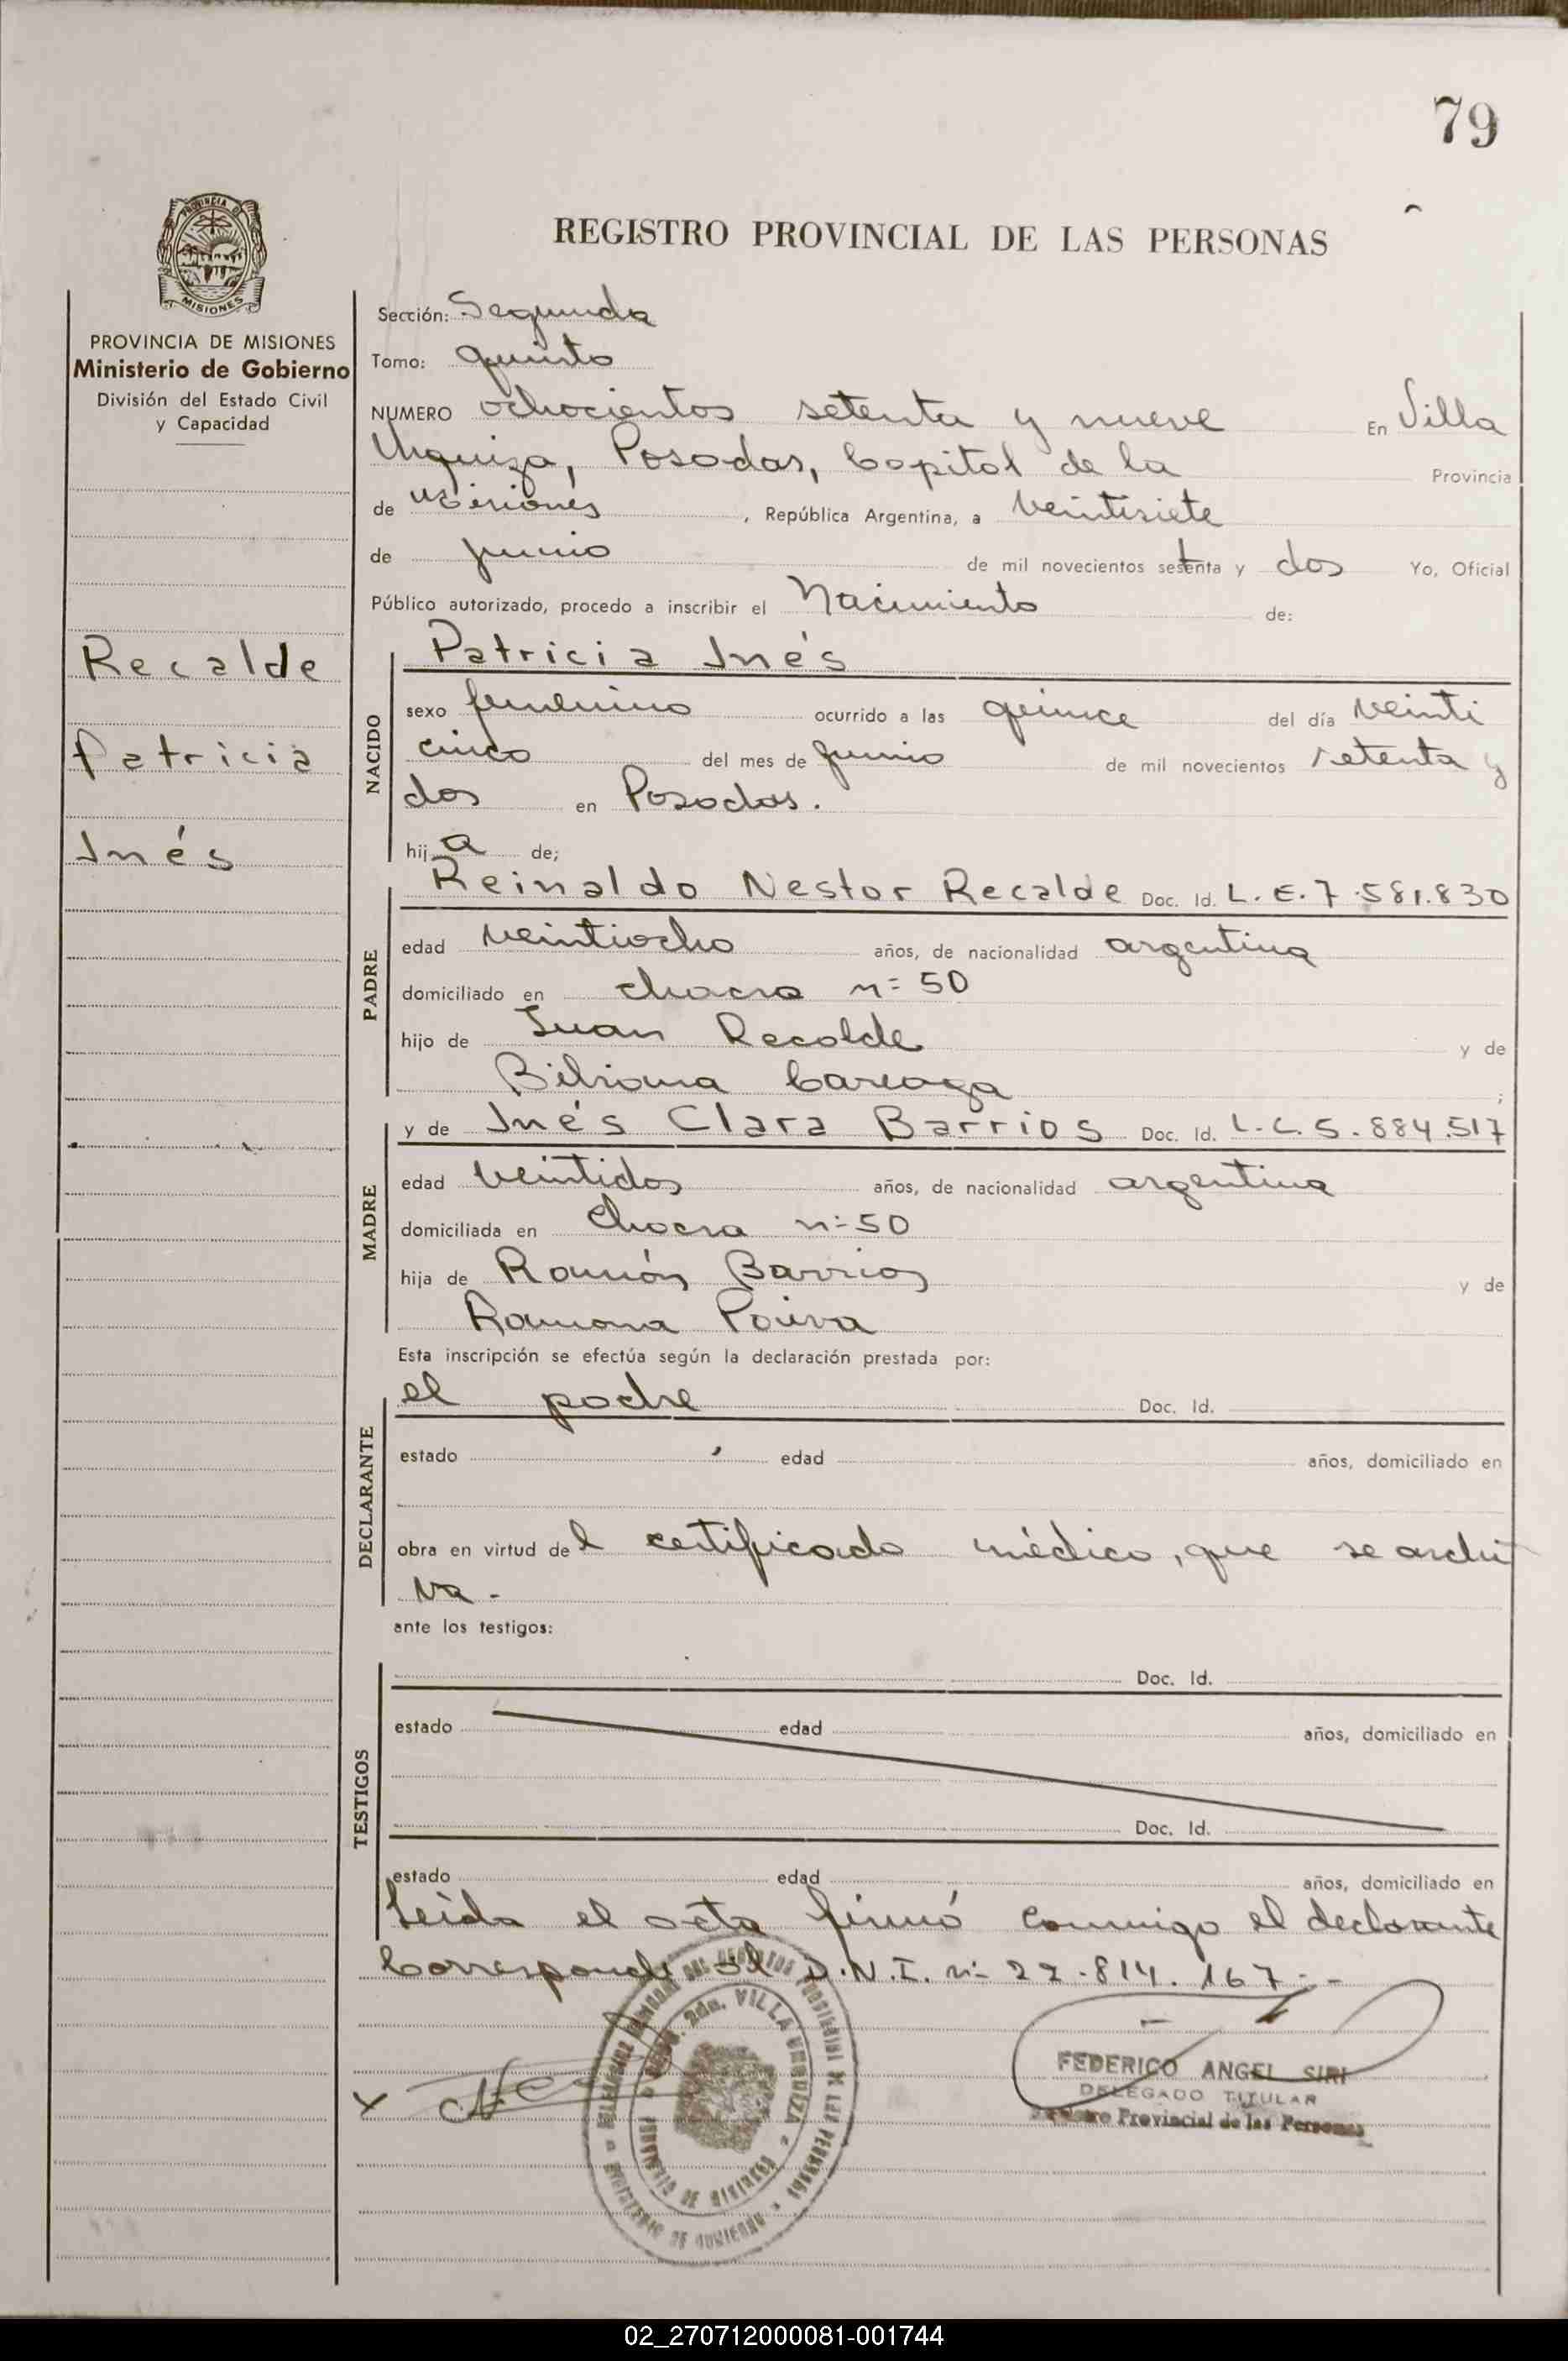 79
PROVINCIA DE
MISIONES
REGISTRO PROVINCIAL DE LAS PERSONAS
PROVINCIA DE MISIONES
Ministerio de Gobierno
División del Estado Civil
y Capacidad
Recalde
Patricia
Inés
Sección: Segunda
Tomo: quinto
NUMERO ochocientos setenta y nueve En Villa
Urquiza, Posadas, Capital de la Provincia
de Misiones, República Argentina, a veintisiete
de junio de mil novecientos setenta y dos Yo, Oficial
Público autorizado, procedo a inscribir el Nacimiento de:
NACIDO
Patricia Inés
sexo femenino ocurrido a las quince del día veinti
cinco del mes de junio de mil novecientos setenta y
dos en Posadas.
hija de;
PADRE
Reinaldo Nestor Recalde Doc. Id. L.E. 7.581.830
edad veintiocho años, de nacionalidad argentina
domiciliado en chacra n= 50
hijo de Juan Recalde y de
Bibiana Careaga;
MADRE
y de Inés Clara Barrios Doc. Id. L.C. 5.884.517
edad veintidos años, de nacionalidad argentina
domiciliada en chacra n= 50
hija de Ramón Barrios y de
Ramona Paiva
Esta inscripción se efectúa según la declaración prestada por:
DECLARANTE
el padre Doc. Id.
estado edad años, domiciliado en
obra en virtud del certificado médico, que se archi
va.-
ante los testigos:
TESTIGOS
Doc. Id.
estado edad años, domiciliado en
Doc. Id.
estado edad años, domiciliado en
Leída el acta firmó conmigo el declarante
Corresponde al D.N.I. n= 22.814.167.-
VILLA URQUIZA
MINISTERIO DE GOBIERNO
FEDERICO ANGEL SIRI
DELEGADO TITULAR
Registro Provincial de las Personas
02_270712000081-001744